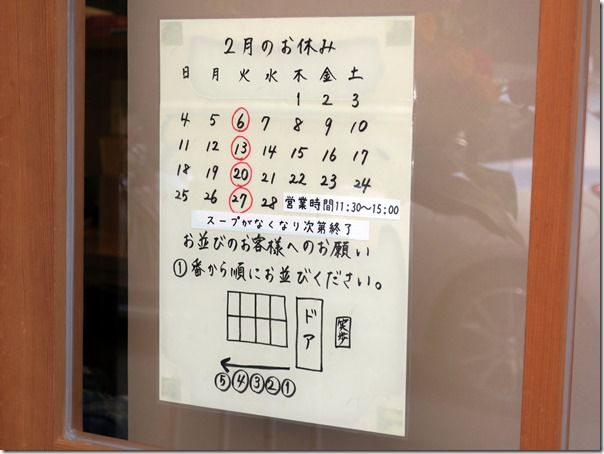 2月のお休み
日 月 火 水 木 金 土
1 2 3
4 5 6 7 8 9 10
11 12 13 14 15 16 17
18 19 20 21 22 23 24
25 26 27 28 営業時間11:30～15:00
スープがなくなり次第終了
お並びのお客様へのお願い
①番から順にお並びください。
ドア
笑歩
⑤④③②①